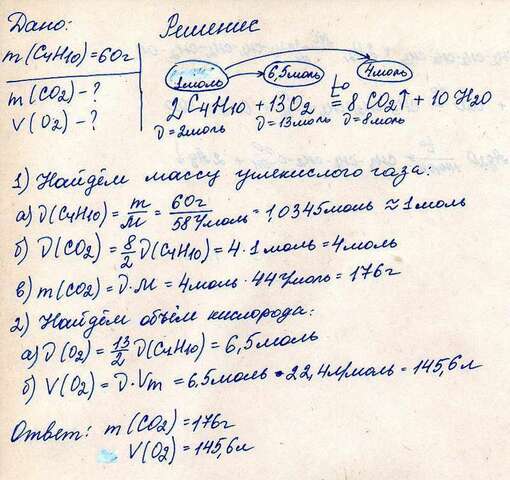 Дано:
m(C4H10)=60г
m(CO2)-?
V(O2)-?
Решение
1моль 6,5моль 4моль
2C4H10 + 13O2 t° = 8CO2↑ + 10H2O
υ=2моль υ=13моль υ=8моль
1) Найдём массу углекислого газа:
а) υ(C4H10) = m/M = 60г/58г/моль = 1,0345моль ≈ 1моль
б) υ(CO2) = 8/2 υ(C4H10) = 4·1моль = 4моль
в) m(CO2) = υ·M = 4моль·44г/моль = 176г
2) Найдём объём кислорода:
а) υ(O2) = 13/2 υ(C4H10) = 6,5моль
б) V(O2) = υ·Vm = 6,5моль·22,4л/моль = 145,6л
Ответ: m(CO2) = 176г
V(O2) = 145,6л